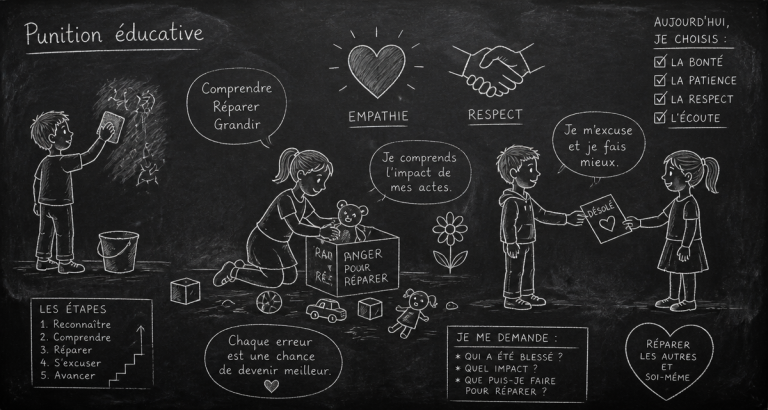 Punition éducative
AUJOURD'HUI,
JE CHOISIS :
LA BONTÉ
LA PATIENCE
LA RESPECT
L'ÉCOUTE
Comprendre
Réparer
Grandir
EMPATHIE
RESPECT
Je comprends
l'impact de
mes actes.
Je m'excuse
et je fais
mieux.
DÉSOLÉ
ANGER
POUR
RÉPARER
LES ÉTAPES
1. Reconnaître
2. Comprendre
3. Réparer
4. S'excuser
5. Avancer
Chaque erreur
est une chance
de devenir meilleur.
JE ME DEMANDE :
* QUI A ÉTÉ BLESSÉ ?
* QUEL IMPACT ?
* QUE PUIS-JE FAIRE
POUR RÉPARER ?
RÉPARER
LES AUTRES
ET
SOI-MÊME